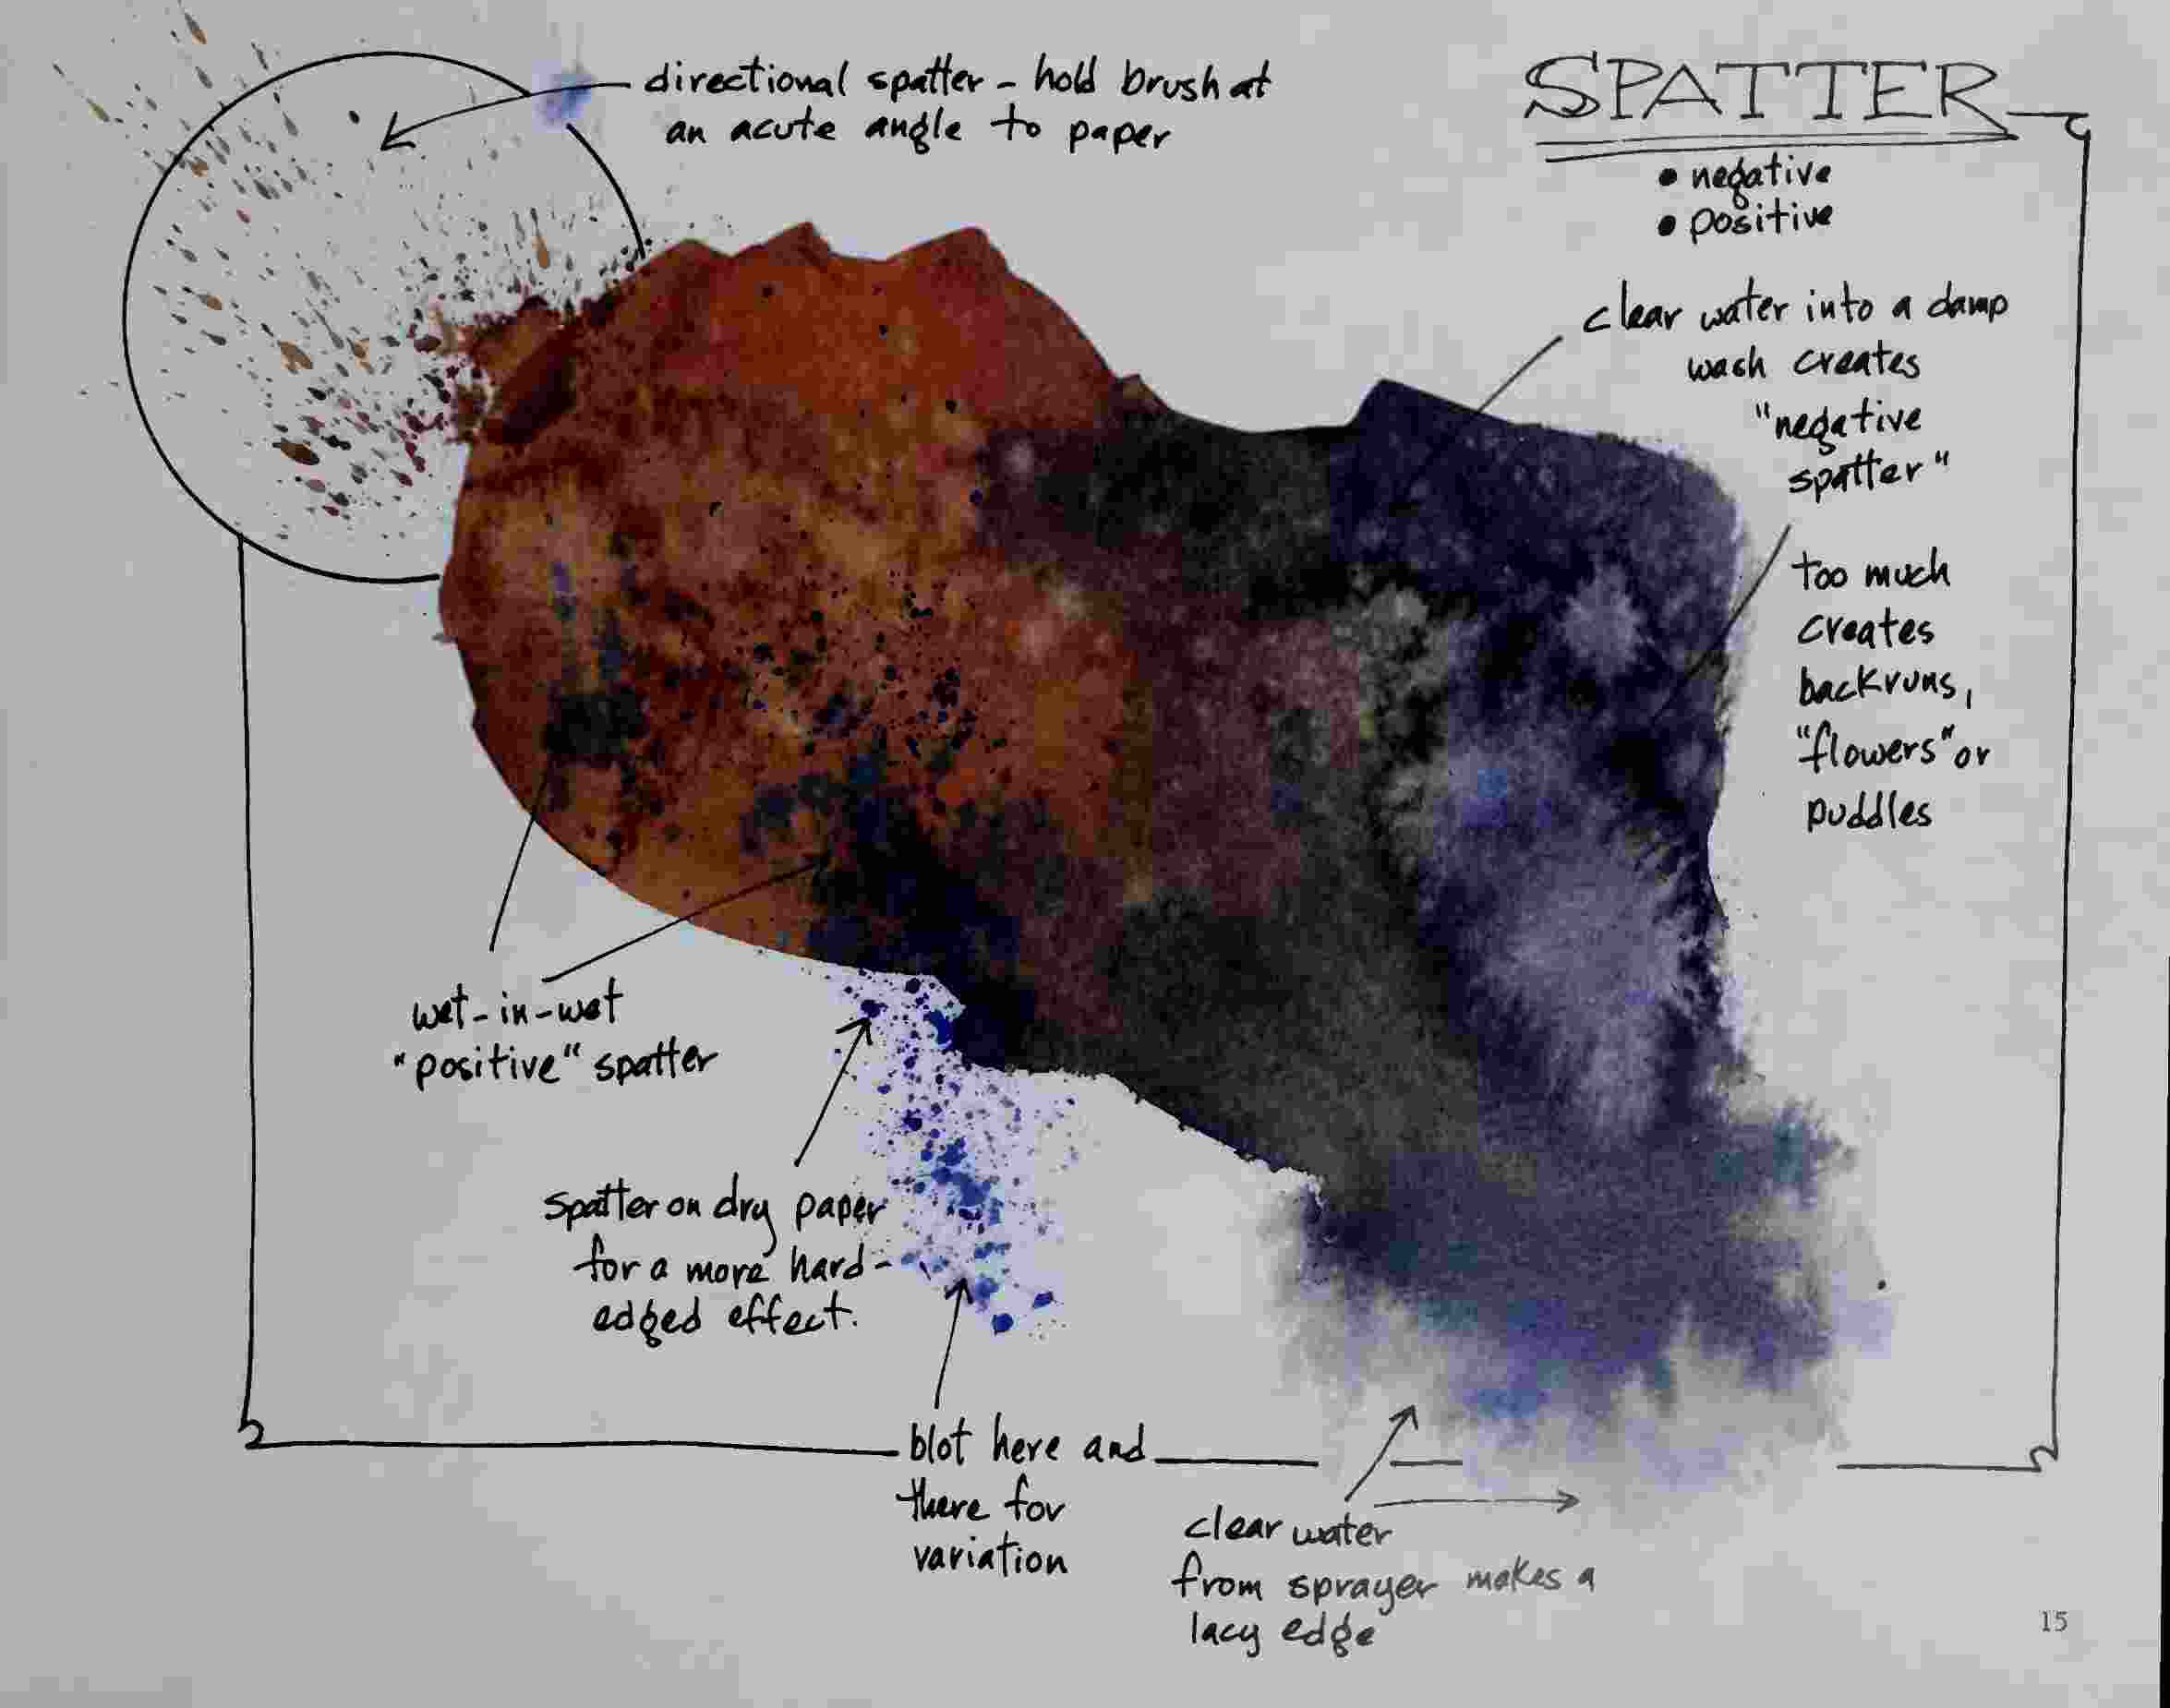 directional spatter - hold brush at
an acute angle to paper
SPATTER
• negative
• positive
clear water into a damp
wash creates
"negative
spatter"
too much
creates
backruns,
"flowers" or
puddles
wet-in-wet
"positive" spatter
spatter on dry paper
for a more hard-
edged effect.
blot here and
there for
variation
clear water
from sprayer makes a
lacy edge
15